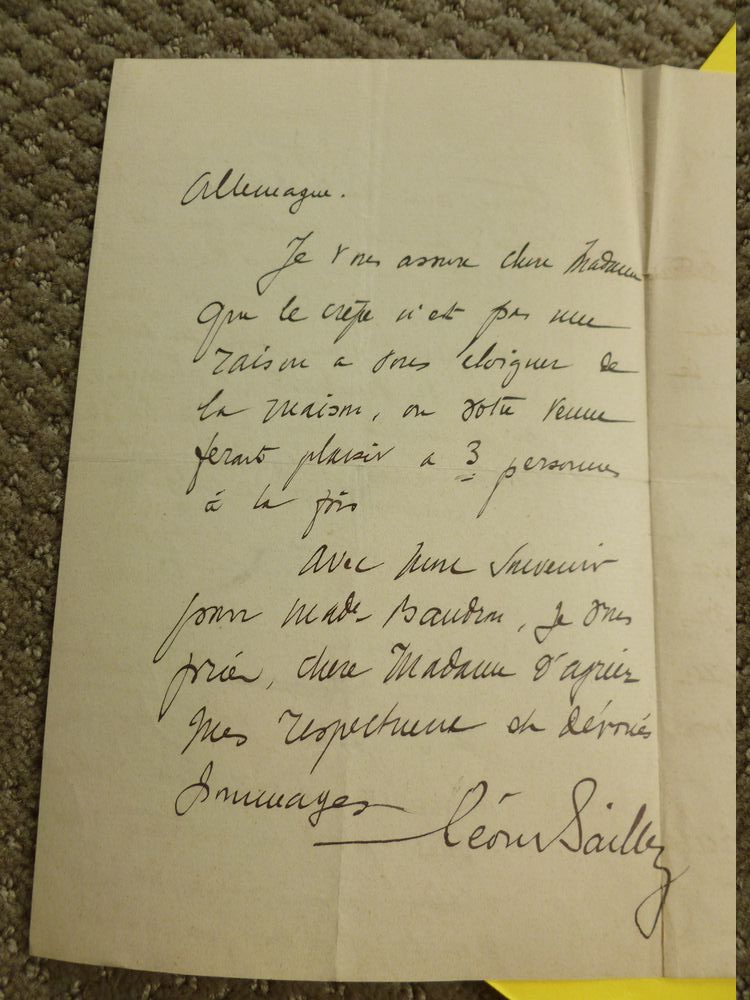 Allemagne.
Je vous assure chere Madame
que le crêpe n'est pas une
raison a vous eloigner de
la maison, ou votre venue
ferait plaisir a 3 personnes
à la fois
Avec mon Souvenir
pour Made Baudron, je vous
prie, chere Madame d'agréer
mes respectueux et dévoués
hommages
Léon Bailly